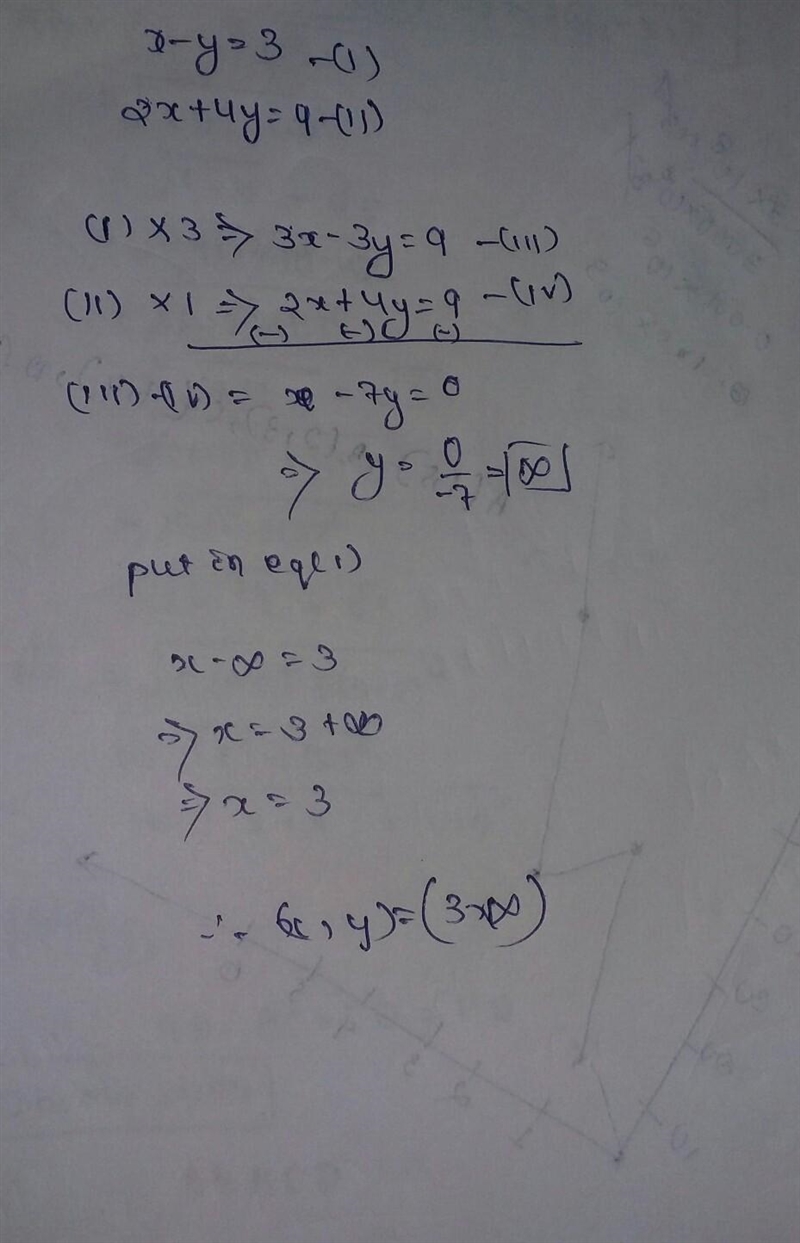 x-y=3 -(I)
2x+4y=9-(II)
(I) × 3 ⇒ 3x-3y=9 -(III)
(II) × 1 ⇒ 2x+4y=9 -(IV)
(-) (-) (-)
(III)-(IV) = x -7y=0
⇒ y= 0/-7 = ∞
put in eq(1)
x-∞=3
⇒ x=3+∞
⇒ x=3
∴ (x,y)=(3,∞)